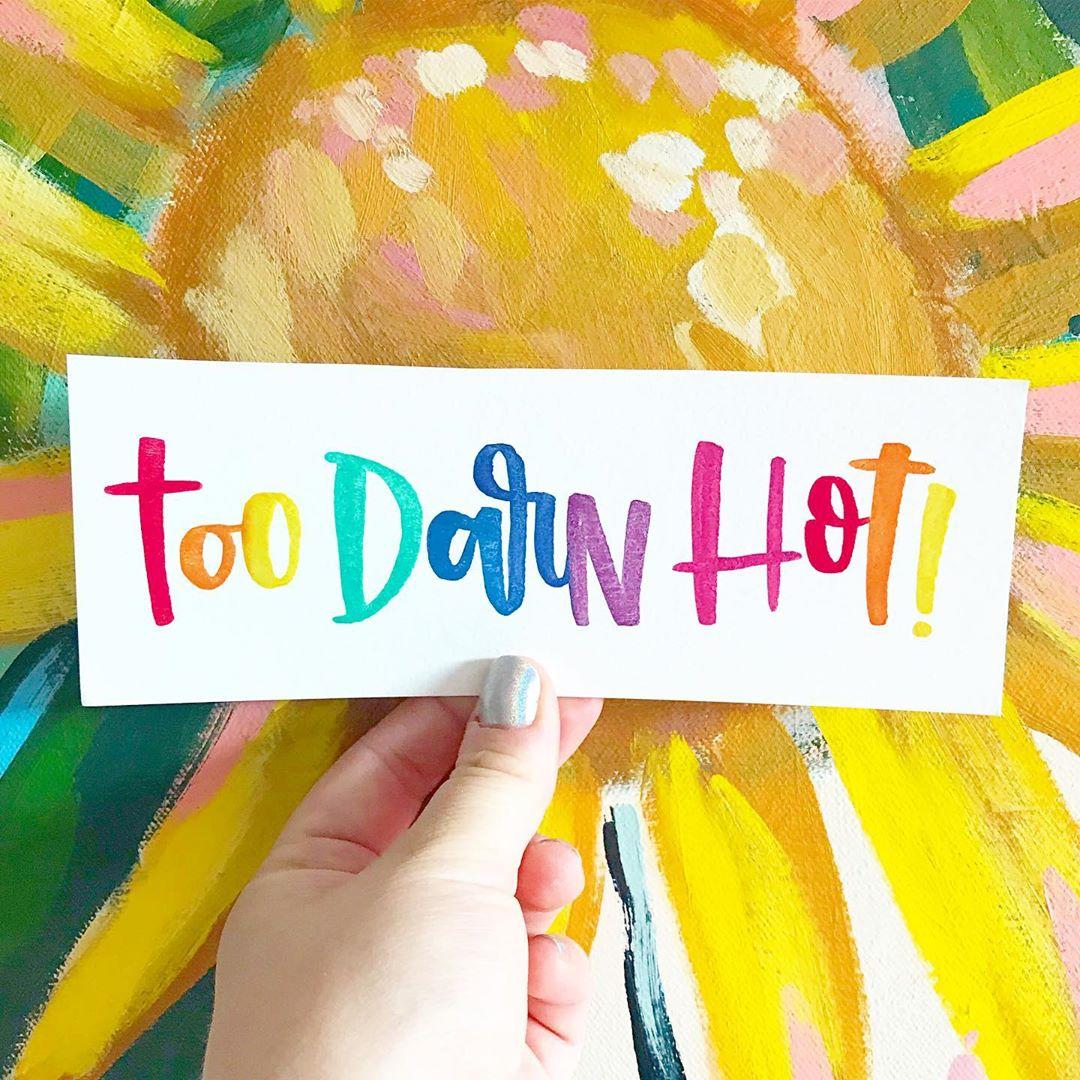 too Darn Hot!